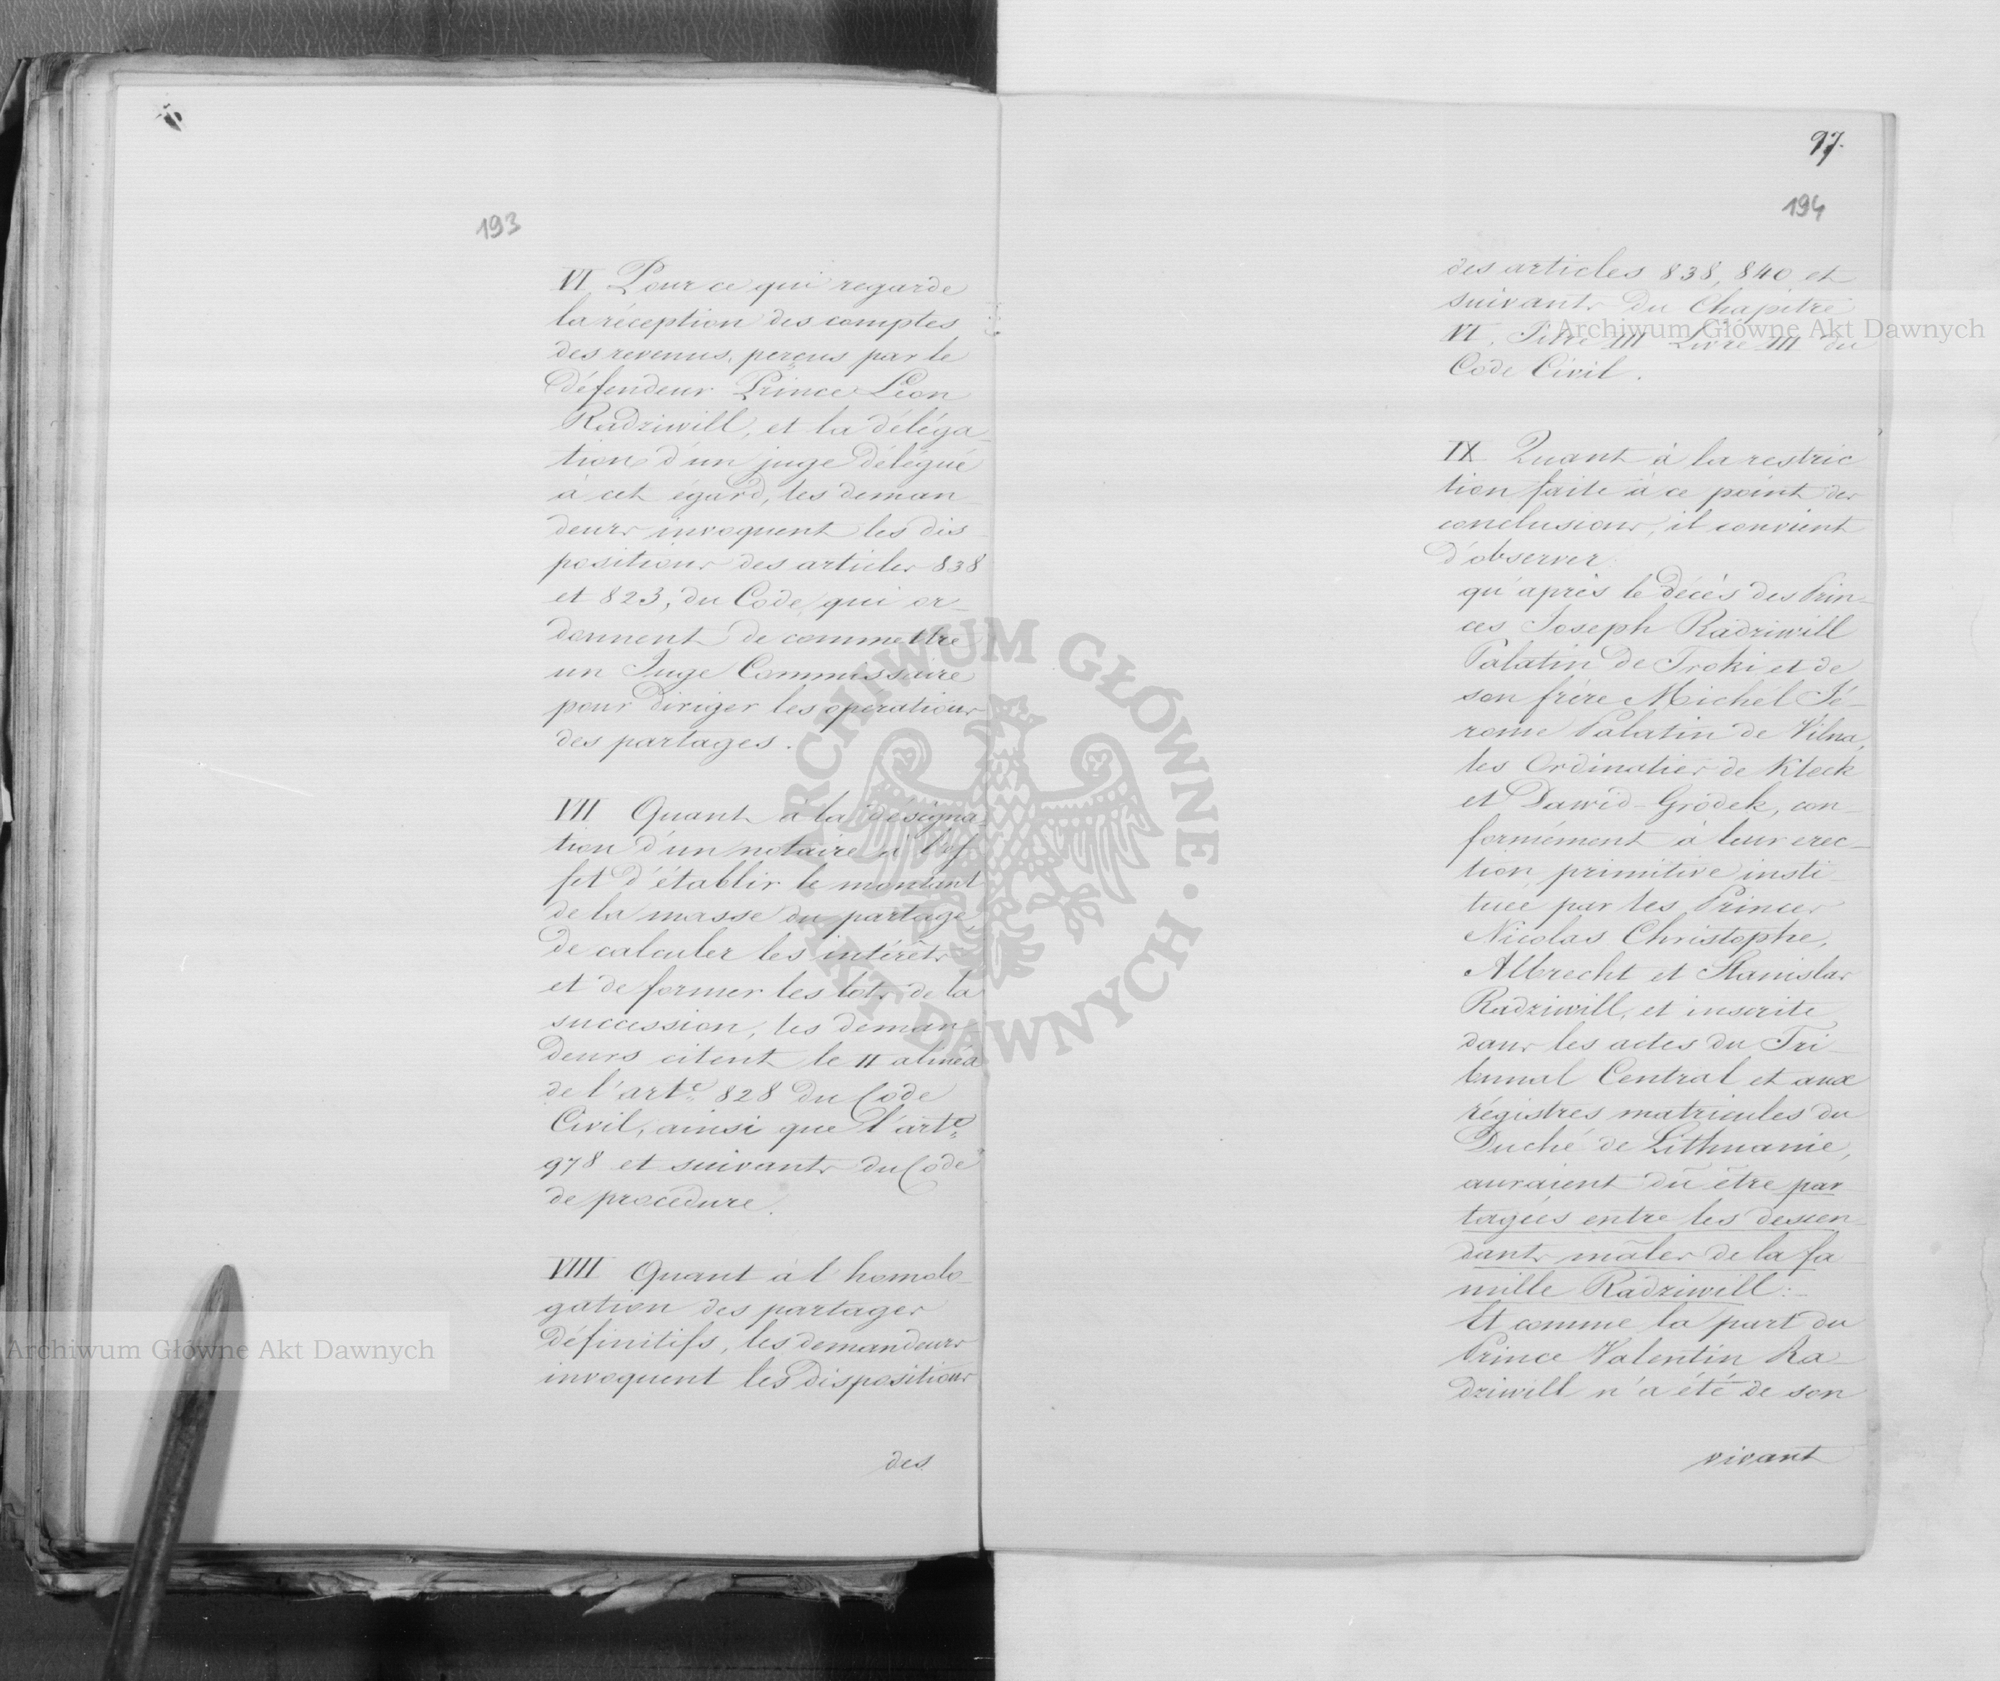 193
VI Pour ce qui regarde
la réception des comptes
des revenus, perçus par le
Défendeur Prince Léon
Radziwill, et la déléga-
tion d'un juge délégué
à cet égard, les deman-
deurs invoquent les dis-
positions des articles 838
et 823, du Code, qui or-
donnent de commettre
un Juge Commissaire
pour diriger les opérations
des partages.
VII Quant à la désigna-
tion d'un notaire à l'ef-
fet d'établir le montant
de la masse du partage,
de calculer les intérêts
et de former les lots de la
succession, les deman-
deurs citent le II alinéa
de l'arte 828 du Code
Civil, ainsi que l'arte
978 et suivants du Code
de procédure.
VIII Quant à l'homolo-
gation des partages
définitifs, les demandeurs
invoquent les dispositions
des
97.
194
des articles 838, 840 et
suivants du Chapitre
VI, Titre III Livre III du
Code Civil.
IX Quant à la restric-
tion faite à ce point des
conclusions, il convient
d'observer:
qu'après le décès des Prin-
ces Joseph Radziwill
Palatin de Troki et de
son frère Michel Jé-
rome Palatin de Vilna,
les Ordinaties de Kleck
et Dawid-Gródek, con-
formément à leur erec-
tion primitive insti-
tuée par les Princes
Nicolas Christophe,
Albrecht et Stanislas
Radziwill, et inscrite
dans les actes du Tri-
bunal Central et aux
régistres matricules du
Duché de Lithuanie,
auraient dû être par-
tagées entre les descen-
dants mâles de la fa-
mille Radziwill:-
Et comme la part du
Prince Valentin Ra-
dziwill n'a été de son
vivant
Archiwum Główne Akt Dawnych
Archiwum Główne Akt Dawnych
ARCHIWUM GŁÓWNE · AKT DAWNYCH ·